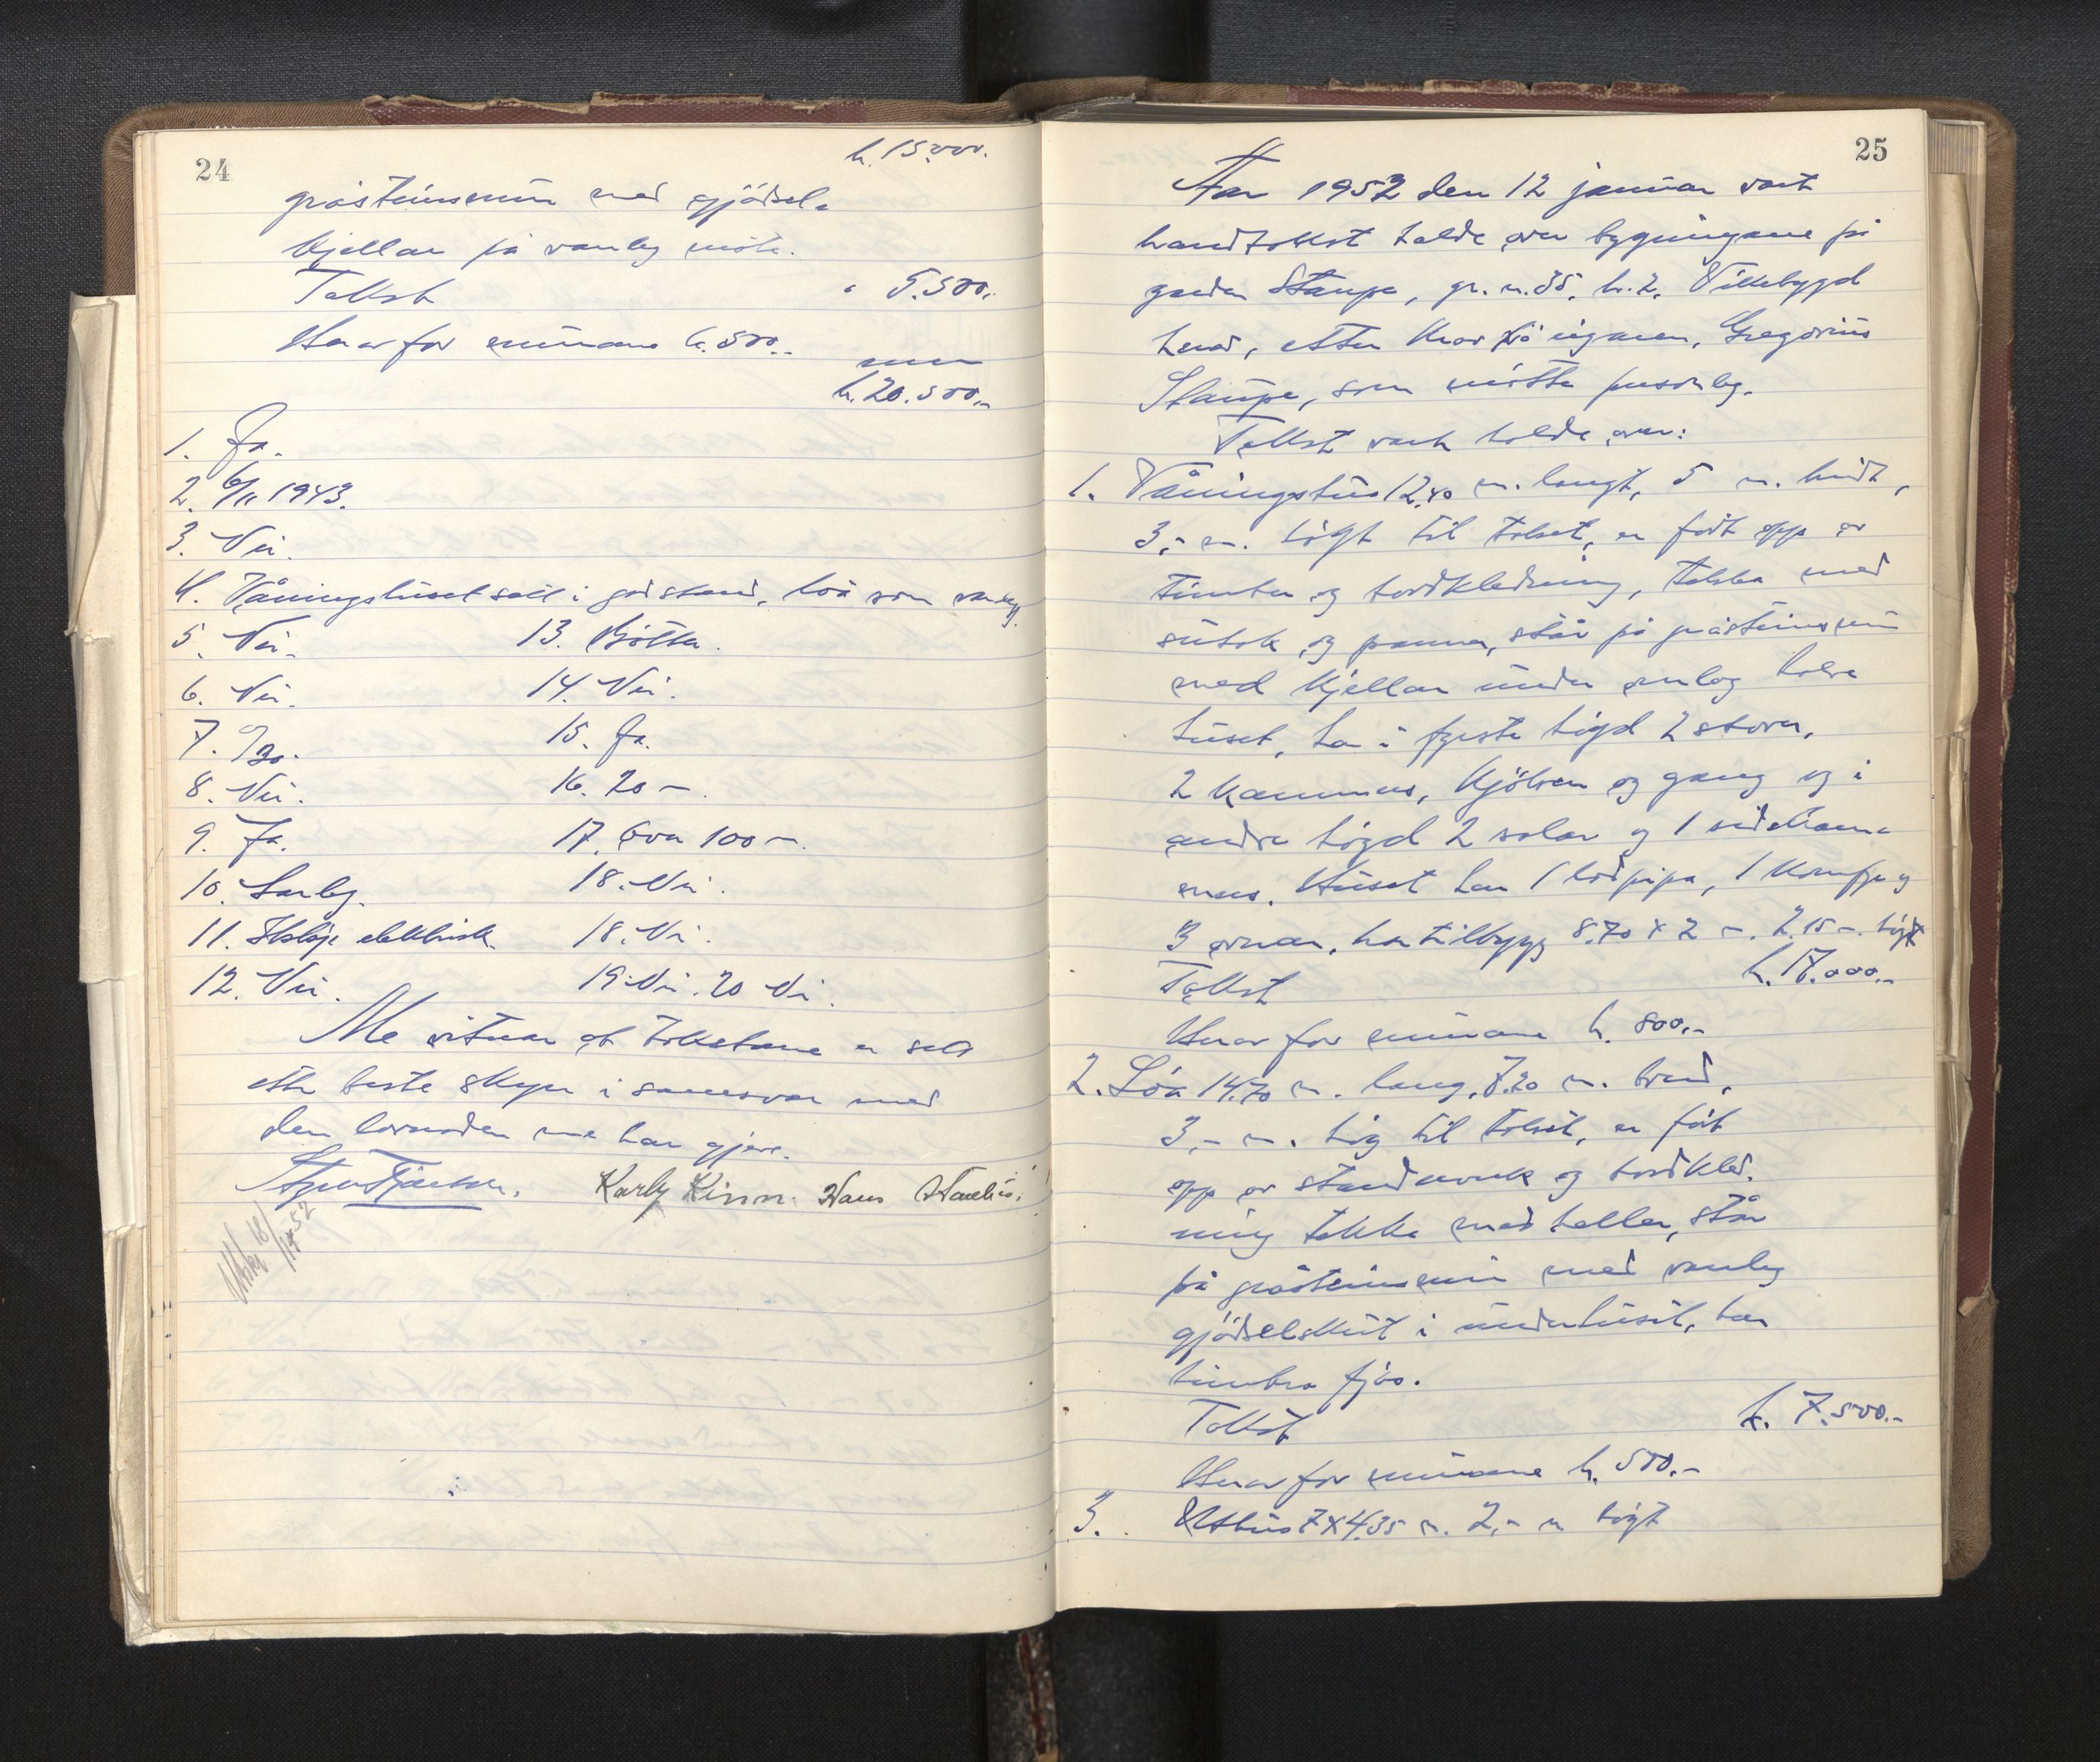 24
kr. 15.000.
gråsteinsmur med gjödsel-
kjellar på vanleg måte.
Takst " 5.500.-
Herav for murane kr. 500.-
kr. 20.500.-
1. Ja.
2. 6/11 1943.
3. Nei.
4. Våningshuset sers i god stand, löa som vanleg.
5. Nei. 13. Bötta.
6. Nei. 14. Nei.
7. 15. Ja.
8. Nei. 16. 20 m.
9. Ja. 17. Over 100 m.
10. Lovleg. 18. Nei.
11. elektrisk 18. Nei.
12. Nei. 19. Nei. 20 Nei.
Me vitnar at takstane er sett
etter beste skyn i samsvar med
den lovnaden me har gjeve.
Karly Kinn. Hans
Utskr. 18/1 1952
25
Aar 1952 den 12 januar vart
brandtakst halde over bygningane på
garden Staupe, gr. n. 35, br. 2. Vikebygd
herad, etter krav frå eigaren, Gregorius
Staupe, som mötte personleg.
Takst vart halde over:
1. Våningshus 12,40 m. langt, 5 m. breidt,
3,- m. högt til taket, er fört opp av
timber og bordkledning, tekka med
sutak og panner, står på gråsteinsmur
med kjellar under omlag halve
huset, har i fyrste högd 2 stover,
2 kammers, kjöken og gang og i
andre högd 2 salar og 1 sidekam-
mers. Huset har 1 lodpipa, 1 komfyr og
3 omnar, har tilbygg 8.70 x 2 m. 2.15 m. högt
Takst kr. 17.000.-
Herav for murane kr. 800.-
2. Löa 14.70 m. lang, 7.20 m. breid,
3,- m. hög til taket, er fört
opp av standarverk og bordkled-
ning tekka med heller, står
på gråsteinsmur med vanleg
gjödselskut i underhuset, har
timbra fjös.
Takst kr. 7.500.-
Herav for murane kr. 500.-
3. Uthus 7 x 4.35 m. 2,- m högt